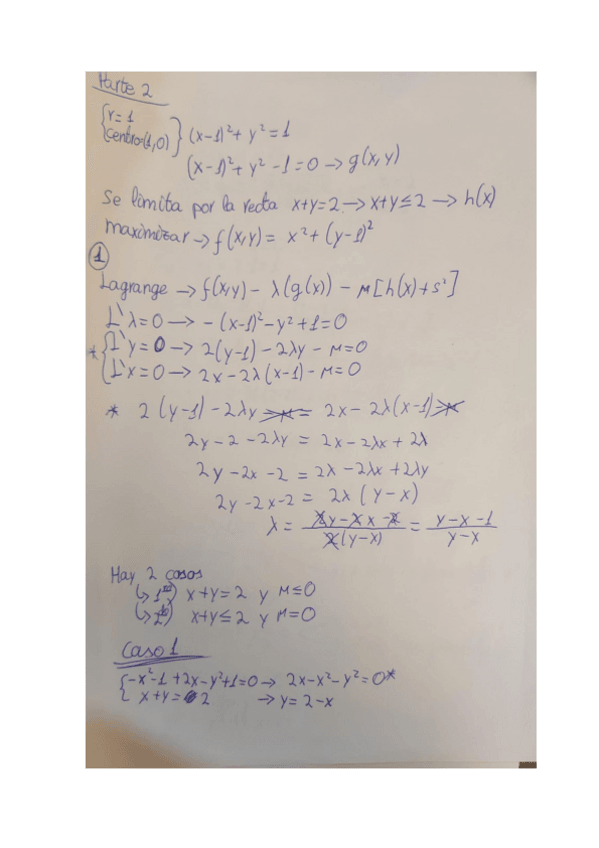 Parte 2
{r=1
{centro(1,0) } (x-1)²+ y²=1
(x-1)²+ y² -1=0 → g(x,y)
Se limita por la recta x+y=2 → x+y≤2 → h(x)
maximizar → f(x,y)= x²+(y-1)²
①
Lagrange → f(x,y) - λ(g(x)) - M[h(x)+s²]
L'λ=0 → -(x-1)²-y²+1=0
*{L'y=0 → 2(y-1)-2λy-M=0
{L'x=0 → 2x-2λ(x-1)-M=0
* 2(y-1)-2λy -M = 2x-2λ(x-1)-M
2y-2-2λy = 2x-2λx+2λ
2y-2x-2 = 2λ-2λx+2λy
2y-2x-2 = 2λ(y-x)
λ = 2y-2x-2 / 2(y-x) = y-x-1 / y-x
Hay 2 casos
↳ 1º) x+y=2 y M≤0
↳ 2º) x+y≤2 y M=0
Caso 1
{-x²-1+2x-y²+1=0 → 2x-x²-y²=0*
{x+y=2 → y=2-x